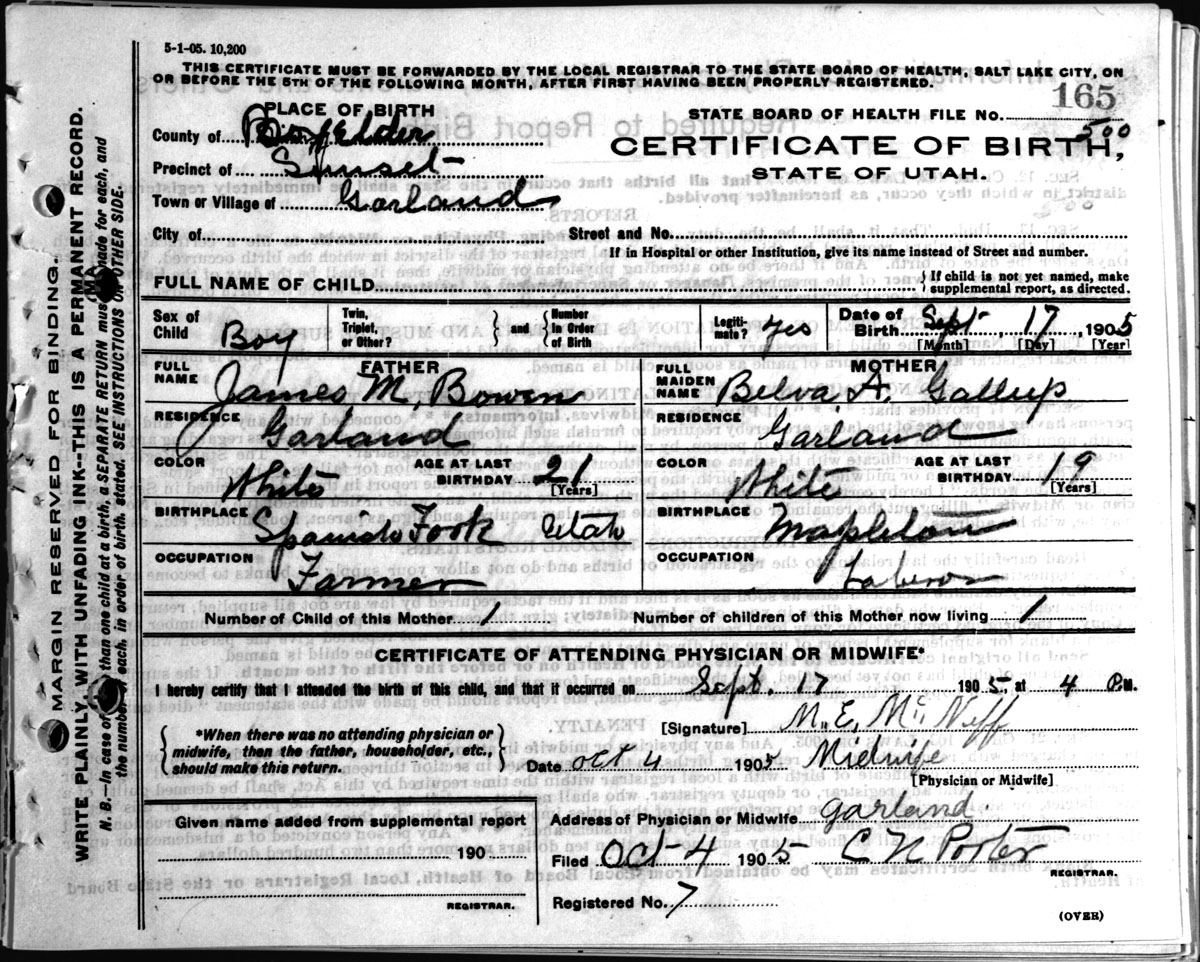 5-1-05. 10,200
THIS CERTIFICATE MUST BE FORWARDED BY THE LOCAL REGISTRAR TO THE STATE BOARD OF HEALTH, SALT LAKE CITY, ON
OR BEFORE THE 5TH OF THE FOLLOWING MONTH, AFTER FIRST HAVING BEEN PROPERLY REGISTERED.
165
PLACE OF BIRTH
STATE BOARD OF HEALTH FILE No.
500
County of Box Elder
CERTIFICATE OF BIRTH,
Precinct of Sunset
STATE OF UTAH.
Town or Village of Garland
500
City of
Street and No.
If in Hospital or other Institution, give its name instead of Street and number.
FULL NAME OF CHILD
If child is not yet named, make supplemental report, as directed.
Sex of Child Boy Twin, Triplet, or Other? and Number In Order of Birth Legitimate? Yes Date of Birth Sept 17, 1905
[Month] [Day] [Year]
FATHER
FULL NAME James M. Bowen
RESIDENCE Garland
COLOR White AGE AT LAST BIRTHDAY 21
[Years]
BIRTHPLACE Spanish Fork Utah
OCCUPATION Farmer
MOTHER
FULL MAIDEN NAME Belva A. Gallup
RESIDENCE Garland
COLOR White AGE AT LAST BIRTHDAY 19
[Years]
BIRTHPLACE Mapleton
OCCUPATION
Number of Child of this Mother 1 Number of children of this Mother now living 1
CERTIFICATE OF ATTENDING PHYSICIAN OR MIDWIFE*
I hereby certify that I attended the birth of this child, and that it occurred on Sept. 17 1905, at 4 P.M.
*When there was no attending physician or
midwife, then the father, householder, etc.,
should make this return.
[Signature] M. E. McNeff
Date Oct 4 1905 Midwife
[Physician or Midwife]
Given name added from supplemental report
190
REGISTRAR.
Address of Physician or Midwife Garland.
Filed Oct-4 1905 C N Porter
REGISTRAR.
Registered No. 7
(OVER)
MARGIN RESERVED FOR BINDING.
WRITE PLAINLY, WITH UNFADING INK--THIS IS A PERMANENT RECORD.
N. B.—In case of more than one child at a birth, a SEPARATE RETURN must be made for each, and
the number of each, in order of birth, stated. SEE INSTRUCTIONS ON OTHER SIDE.